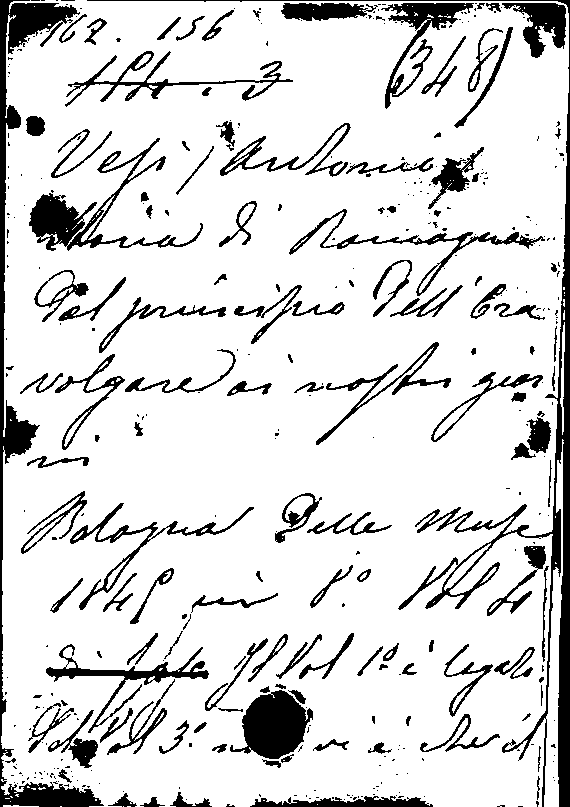 162. 156
184. 3 (348)
Vesi / Antonio /
Storia di Romagna
dal principio dell'Era
volgare ai nostri gior
ni
Bologna Delle Muse
1845 in 8°. Vol 4
di Il Vol 1° è legato.
Del Vol 3° vi è che il